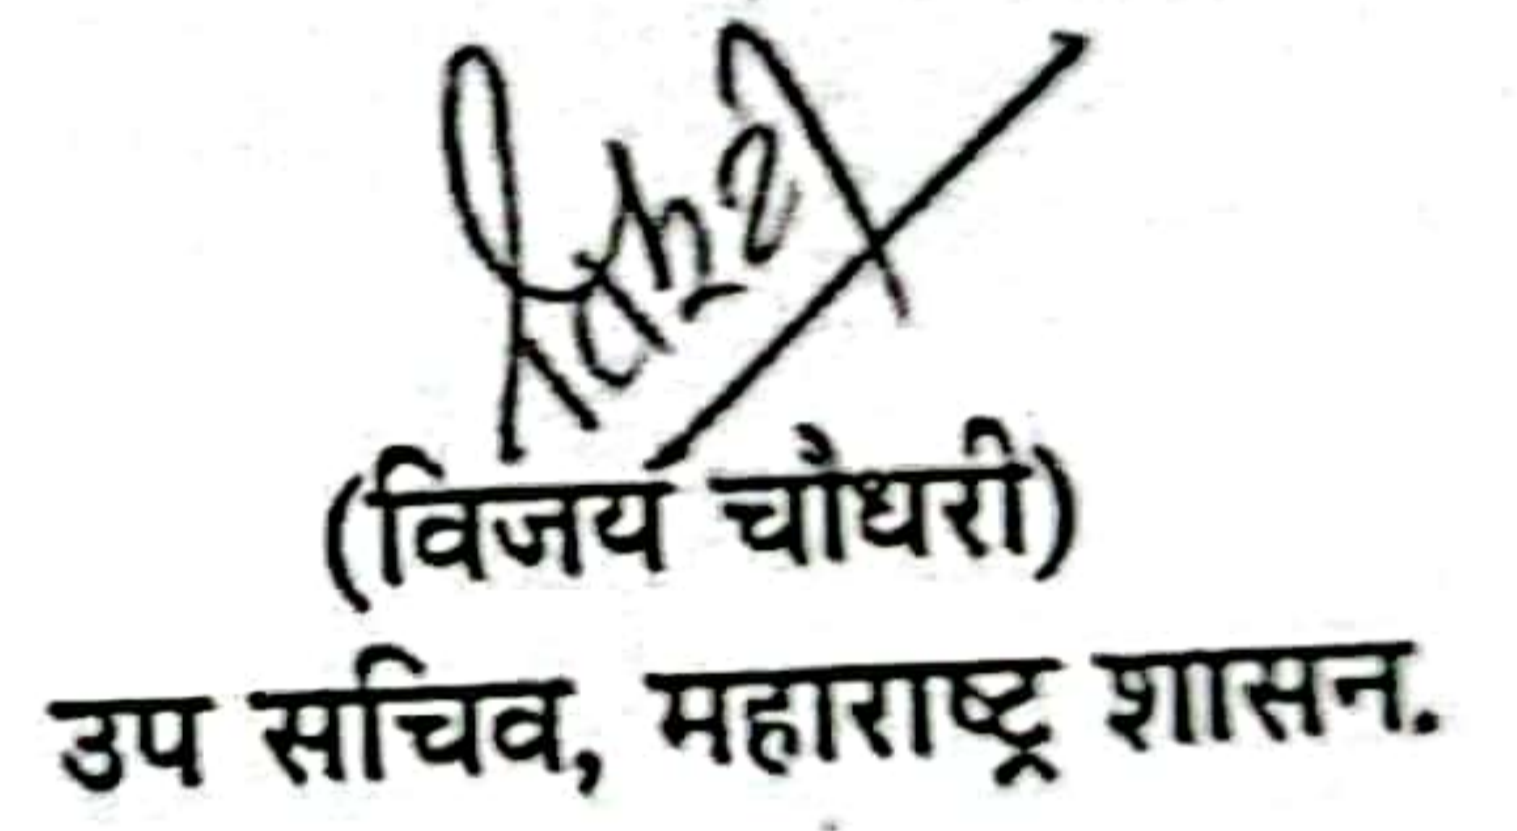 (विजय चौधरी)
उप सचिव, महाराष्ट्र शासन.